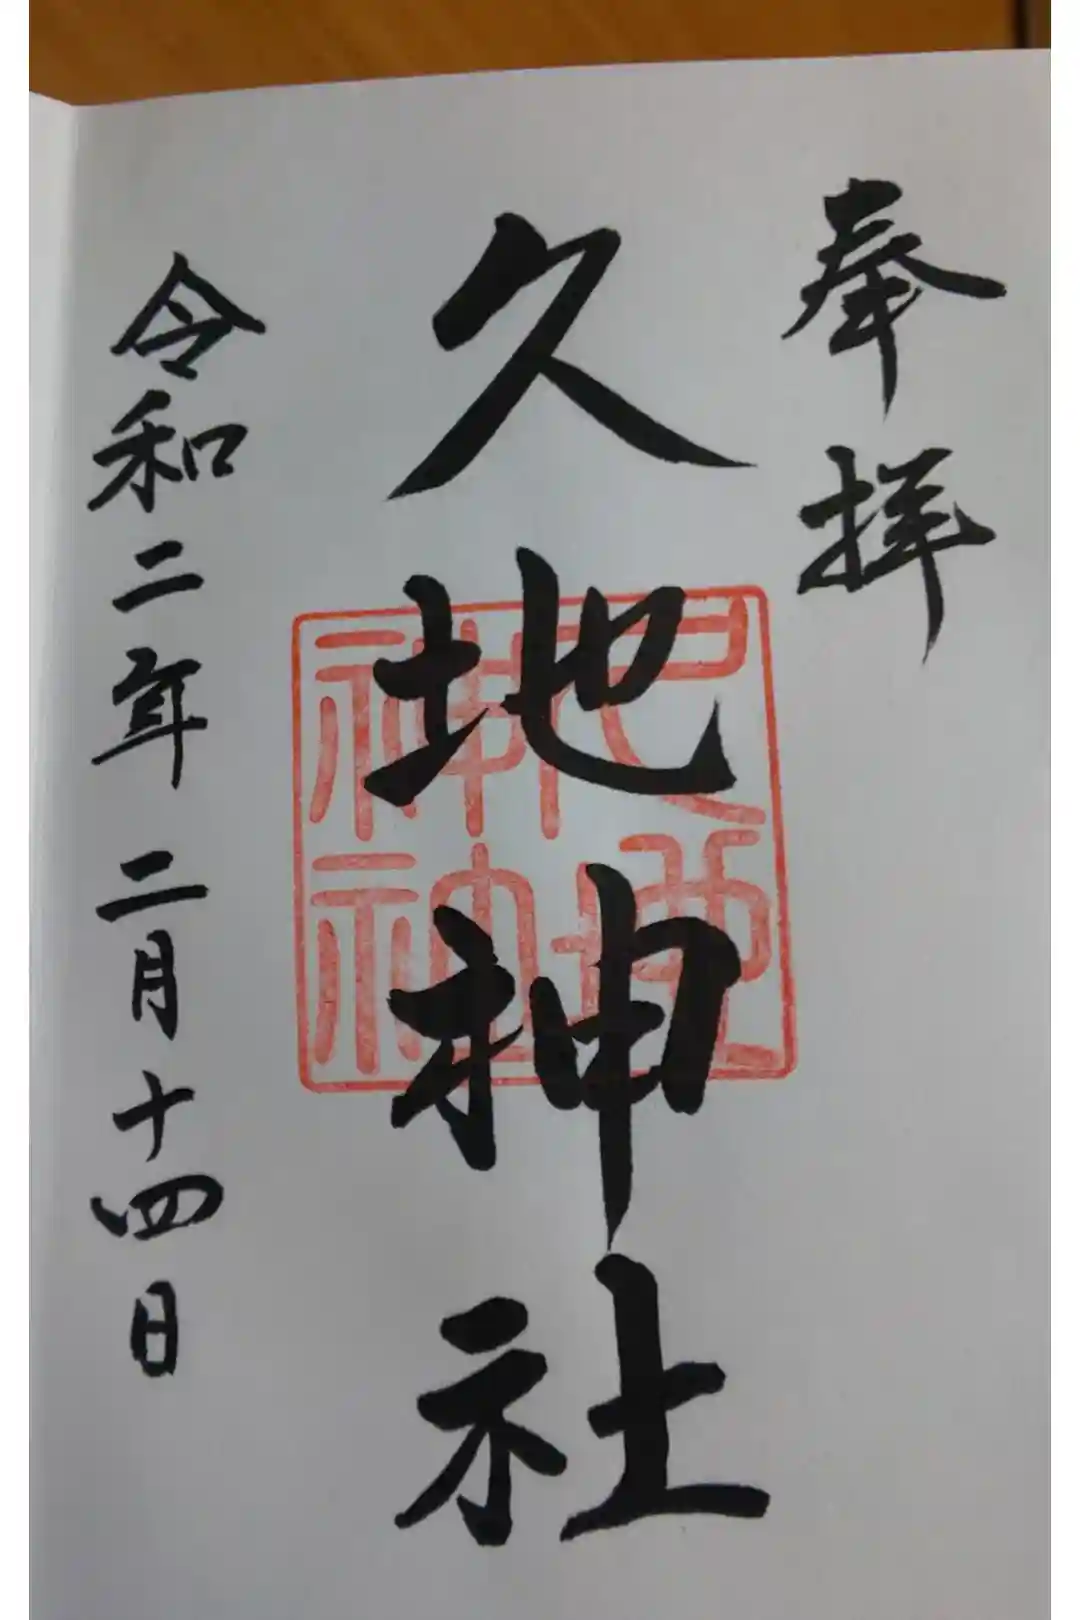 奉拝
久地神社
久地
神社
令和二年二月十四日